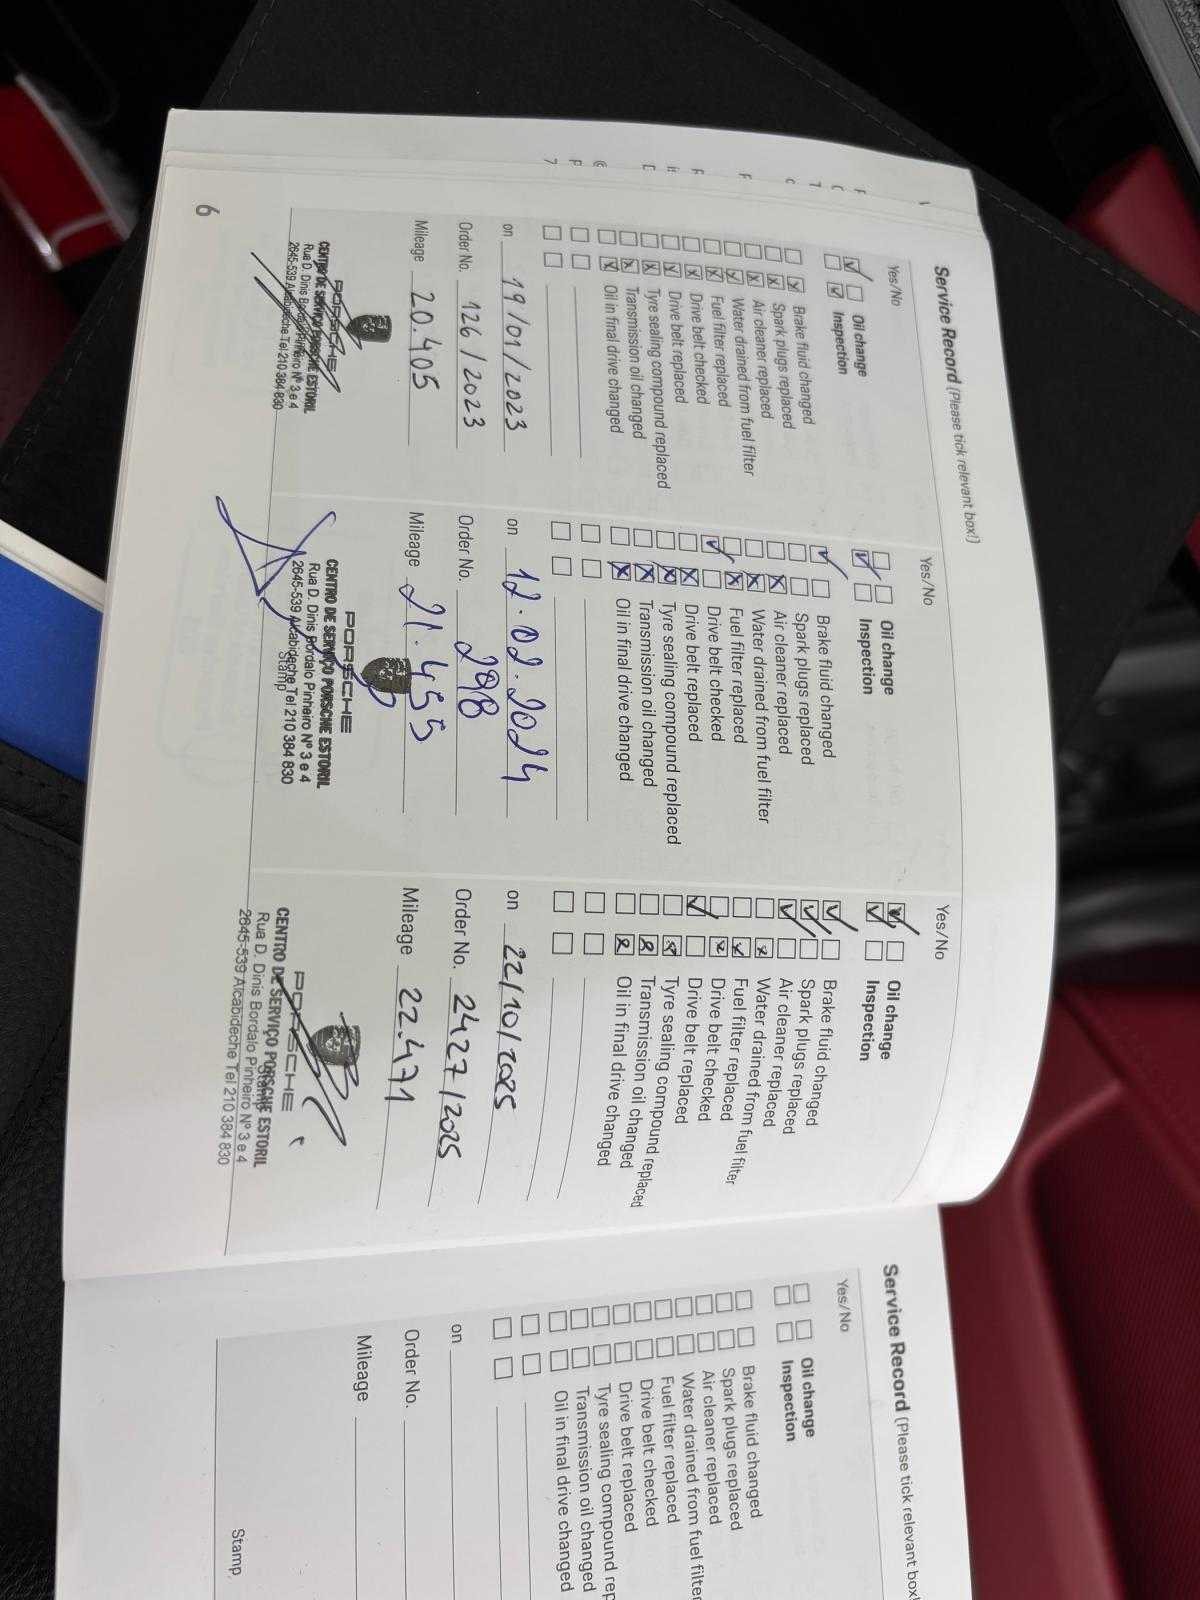 Service Record (Please tick relevant box!)
Yes/No
Oil change
Inspection
Brake fluid changed
Spark plugs replaced
Air cleaner replaced
Water drained from fuel filter
Fuel filter replaced
Drive belt checked
Drive belt replaced
Tyre sealing compound replaced
Transmission oil changed
Oil in final drive changed
on 19/01/2023
Order No. 126/2023
Mileage 20.405
PORSCHE
CENTRO DE SERVIÇO PORSCHE ESTORIL
Rua D. Dinis Bordalo Pinheiro Nº 3 e 4
2645-539 Alcabideche Tel 210 384 830
6
Yes/No
Oil change
Inspection
Brake fluid changed
Spark plugs replaced
Air cleaner replaced
Water drained from fuel filter
Fuel filter replaced
Drive belt checked
Drive belt replaced
Tyre sealing compound replaced
Transmission oil changed
Oil in final drive changed
on 12.02.2024
Order No. 298
Mileage 21.455
PORSCHE
CENTRO DE SERVIÇO PORSCHE ESTORIL
Rua D. Dinis Bordalo Pinheiro Nº 3 e 4
2645-539 Alcabideche Tel 210 384 830
Stamp
Yes/No
Oil change
Inspection
Brake fluid changed
Spark plugs replaced
Air cleaner replaced
Water drained from fuel filter
Fuel filter replaced
Drive belt checked
Drive belt replaced
Tyre sealing compound replaced
Transmission oil changed
Oil in final drive changed
on 22/10/2025
Order No. 2427/2025
Mileage 22.471
PORSCHE
CENTRO DE SERVIÇO PORSCHE ESTORIL
Stamp
Rua D. Dinis Bordalo Pinheiro Nº 3 e 4
2645-539 Alcabideche Tel 210 384 830
Service Record (Please tick relevant box!
Yes/No
Oil change
Inspection
Brake fluid changed
Spark plugs replaced
Air cleaner replaced
Water drained from fuel filter
Fuel filter replaced
Drive belt checked
Drive belt replaced
Tyre sealing compound rep
Transmission oil changed
Oil in final drive changed
on
Order No.
Mileage
Stamp